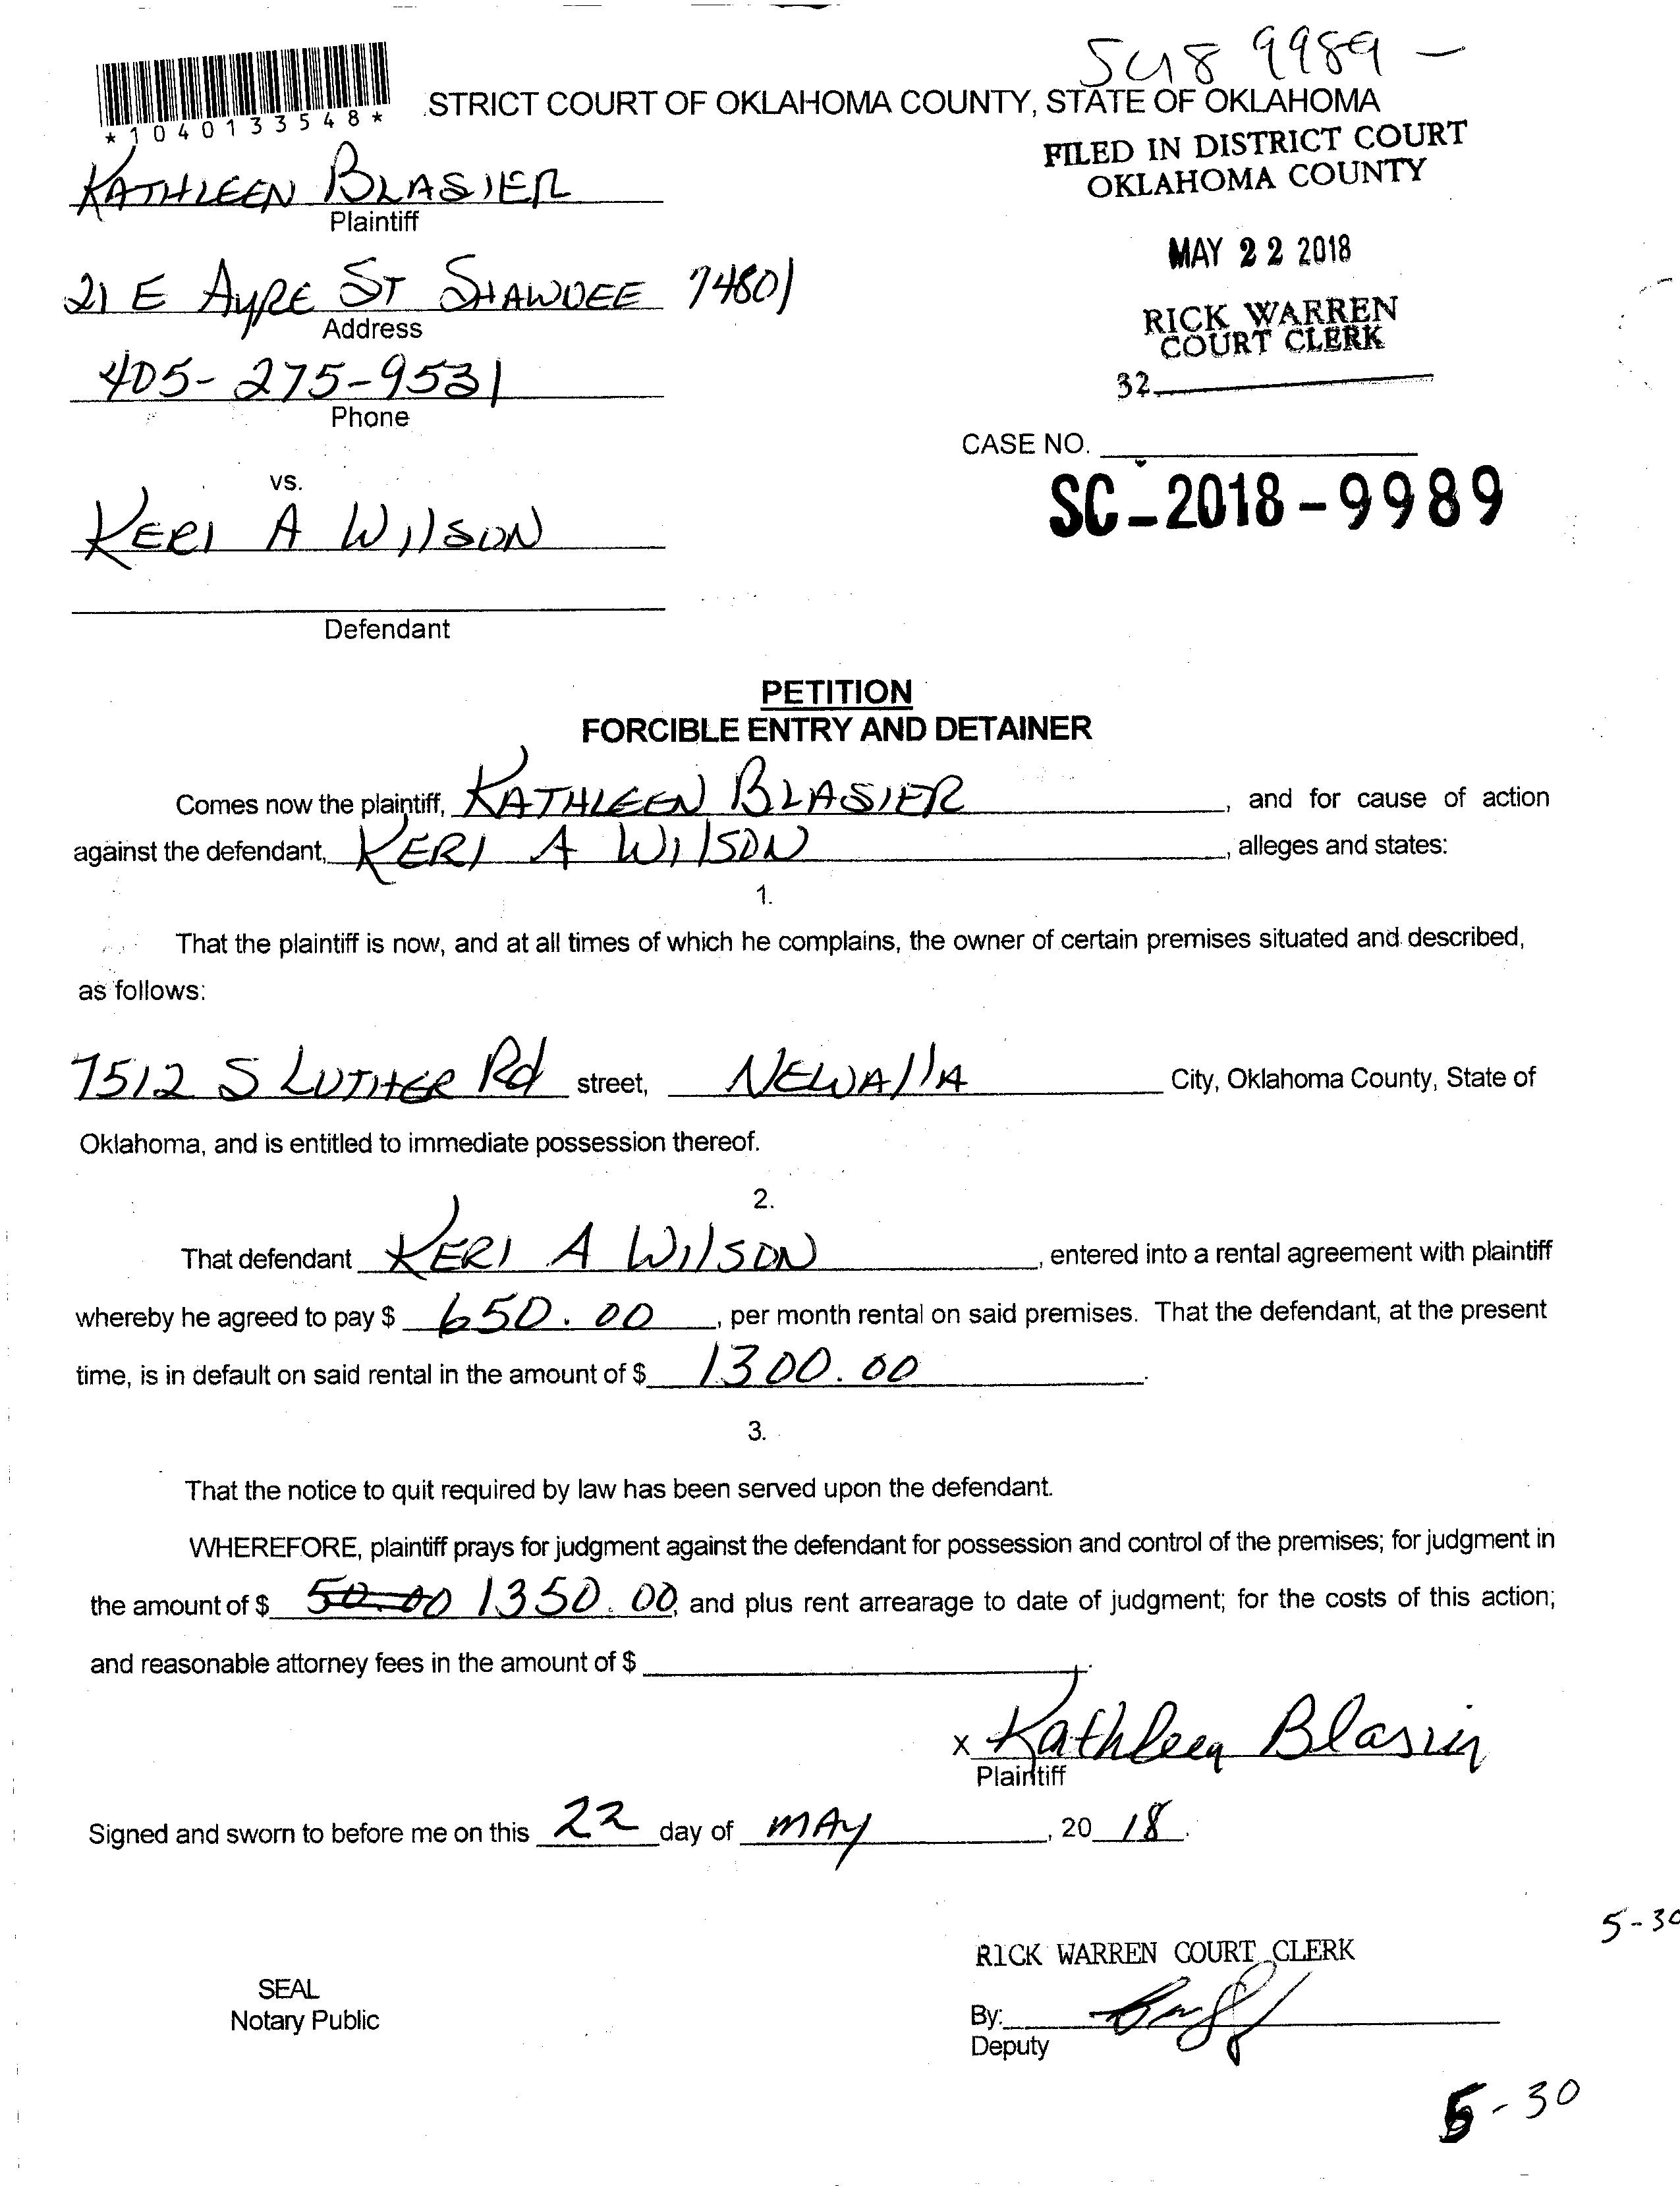 SC18 9989 -
*1040133548*
STRICT COURT OF OKLAHOMA COUNTY, STATE OF OKLAHOMA
FILED IN DISTRICT COURT
OKLAHOMA COUNTY
KATHLEEN BLASIER
Plaintiff
MAY 22 2018
21 E AYRE ST SHAWNEE 74801
Address
RICK WARREN
COURT CLERK
405-275-9531
Phone
32
CASE NO.
SC-2018-9989
vs.
KERI A WILSON
Defendant
PETITION
FORCIBLE ENTRY AND DETAINER
Comes now the plaintiff, KATHLEEN BLASIER, and for cause of action
against the defendant, KERI A WILSON, alleges and states:
1.
That the plaintiff is now, and at all times of which he complains, the owner of certain premises situated and described,
as follows:
7512 S LUTHER Rd street, NEWALLA City, Oklahoma County, State of
Oklahoma, and is entitled to immediate possession thereof.
2.
That defendant KERI A WILSON, entered into a rental agreement with plaintiff
whereby he agreed to pay $ 650.00, per month rental on said premises. That the defendant, at the present
time, is in default on said rental in the amount of $ 1300.00.
3.
That the notice to quit required by law has been served upon the defendant.
WHEREFORE, plaintiff prays for judgment against the defendant for possession and control of the premises; for judgment in
the amount of $ 50.00 1350.00, and plus rent arrearage to date of judgment; for the costs of this action;
and reasonable attorney fees in the amount of $ .
x Kathleen Blasier
Plaintiff
Signed and sworn to before me on this 22 day of MAY, 20 18.
5-30
RICK WARREN COURT CLERK
SEAL
Notary Public
By:
Deputy
5-30